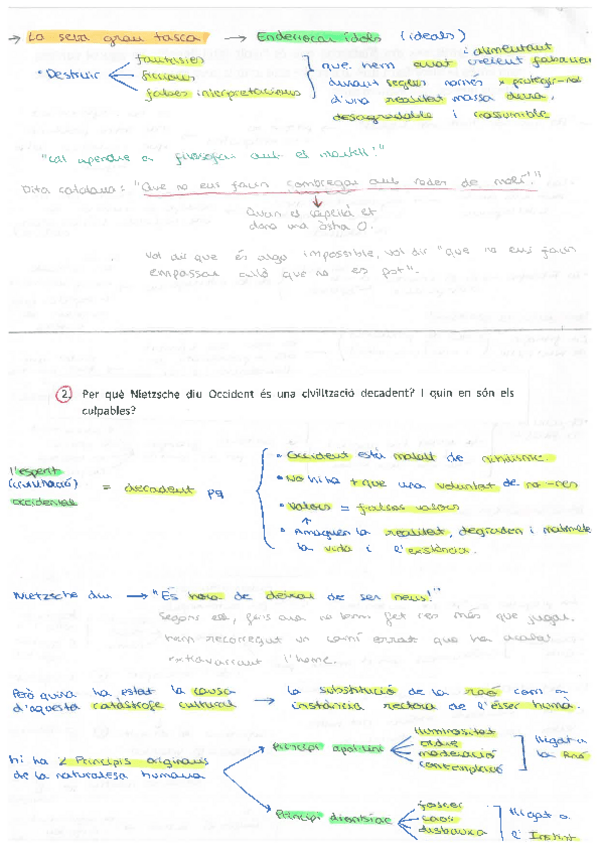 → La seva gran tasca → Enderrocar ídols (ideals)
• Destruir
fantasies
ficcions
falses interpretacions
que hem anat creient i alimentant
durant segles només x protegir-nos
d'una realitat massa dura,
desagradable i inassumible
"cal aprendre a filosofar amb el martell!"
Dita catalana: "Que no ens facin combregar amb rodes de molí!"
Quan el capellà et
dona una òstia O.
Vol dir que és algo impossible, vol dir "que no ens facin
empassar allò que no es pot".
2. Per què Nietzsche diu Occident és una civilització decadent? I quin en són els
culpables?
L'esperit
(civilització)
occidental
= decadent pq
• Occident està malalt de nihilisme.
• No hi ha + que una voluntat de no-res
• Valors = falsos valors
• Amaguen la realitat, degraden i
la vida i l'existència.
Nietzsche diu → "És hora de deixar de ser nens!"
Segons ell, fins ara no hem fet res més que jugar.
hem recorregut un camí errat que ha acabat
extraviant l'home.
Però quina ha estat la causa
d'aquesta catàstrofe cultural
→ la substitució de la raó com a
instància rectora de l'ésser humà.
hi ha 2 Principis originaris
de la naturalesa humana
Principi apol·lini
lluminositat
ordre
moderació
contemplació
lligat a
la Raó
Principi dionisíac
foscor
caos
disbauxa
lligat a
l'Instint